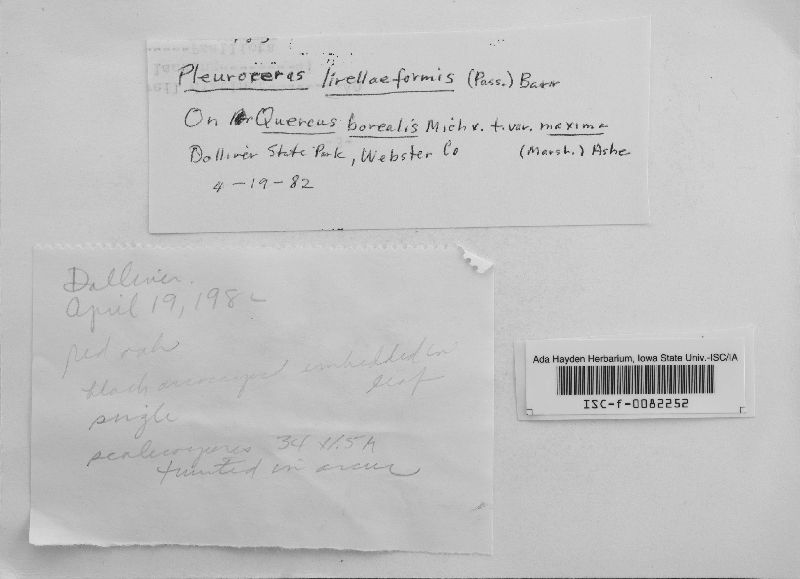 Pleuroceras lirellaeformis (Pass.) Barr
On Quercus borealis Michx. f. var. maxima
Dolliver State Park, Webster Co (Marsh.) Ashe
4-19-82
Dolliver.
April 19, 1982
red oak
black ascocarps embedded in
leaf
single
34 x 1.5
twisted in ascus
Ada Hayden Herbarium, Iowa State Univ.-ISC/IA
ISC-f-0082252